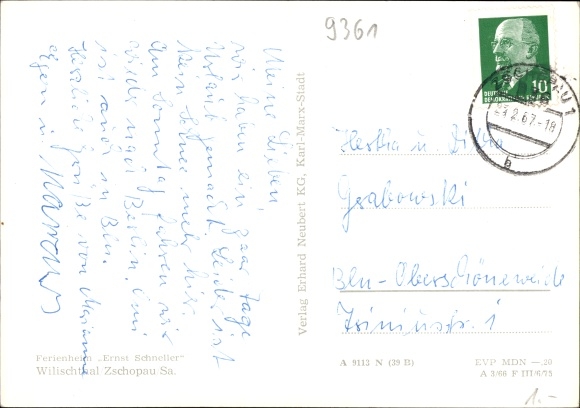 9361
Meine Lieben,
wir haben ein paar Tage
Urlaub gemacht. Leider ist
kein Schnee mehr hier.
Am Sonntag fahren wir
wieder nach Berlin.
ist auch in Bln.
Herzliche Grüße von Marianne
Verlag Erhard Neubert KG, Karl-Marx-Stadt
10
DEUTSCHE
DEMOKRATISCHE REPUBLIK
ZSCHOPAU 1
2.67.-18
b
Hertha u.
Grabowski
Bln-Oberschöneweide
Triniusstr. 1
Ferienheim „Ernst Schneller"
Willischthal Zschopau Sa.
A 9113 N (39 B)
EVP MDN —.20
A 3/66 F III/6/15
1.-